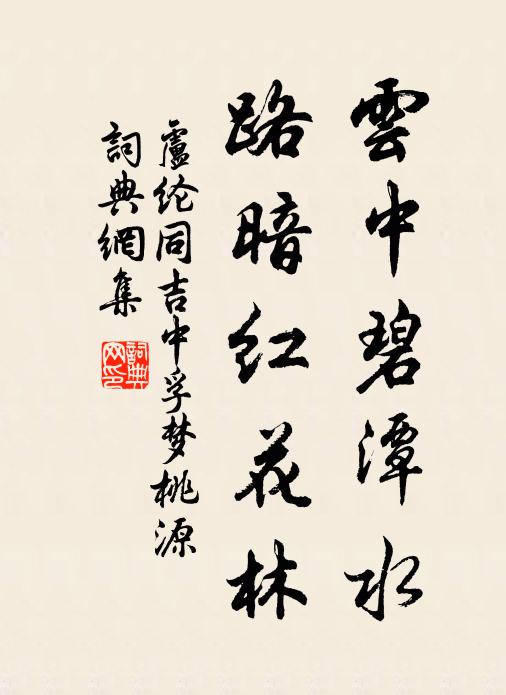 雲中碧潭水
路暗紅花林
盧纶同吉中孚梦桃源
詞典網集
詞典
网印